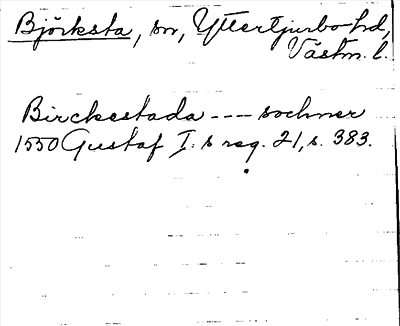 Björksta, sn, Yttertjurbo hd,
Västm. l.
Birckestada --- sochner
1550 Gustaf I:s reg. 21, s. 383.